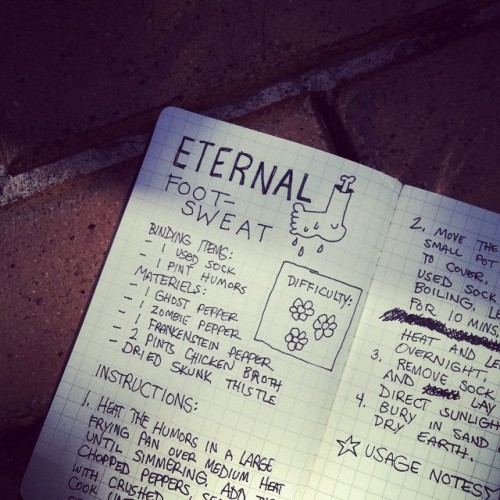 ETERNAL
FOOT-
SWEAT
BINDING ITEMS:
- 1 USED SOCK
- 1 PINT HUMORS
MATERIELS:
- 1 GHOST PEPPER
- 1 ZOMBIE PEPPER
- 1 FRANKENSTEIN PEPPER
- 2 PINTS CHICKEN BROTH
- DRIED SKUNK THISTLE
DIFFICULTY:
INSTRUCTIONS:
1. HEAT THE HUMORS IN A LARGE
FRYING PAN OVER MEDIUM HEAT
UNTIL SIMMERING. ADD
CHOPPED PEPPERS,
WITH CRUSHED
COOK
2. MOVE THE
SMALL POT
TO COVER.
USED SOCK
BOILING.
FOR 10
HEAT AND
OVERNIGHT.
3. REMOVE SOCK
AND LAY
DIRECT SUNLIGHT
4. BURY IN SAND
DRY EARTH.
USAGE NOTES